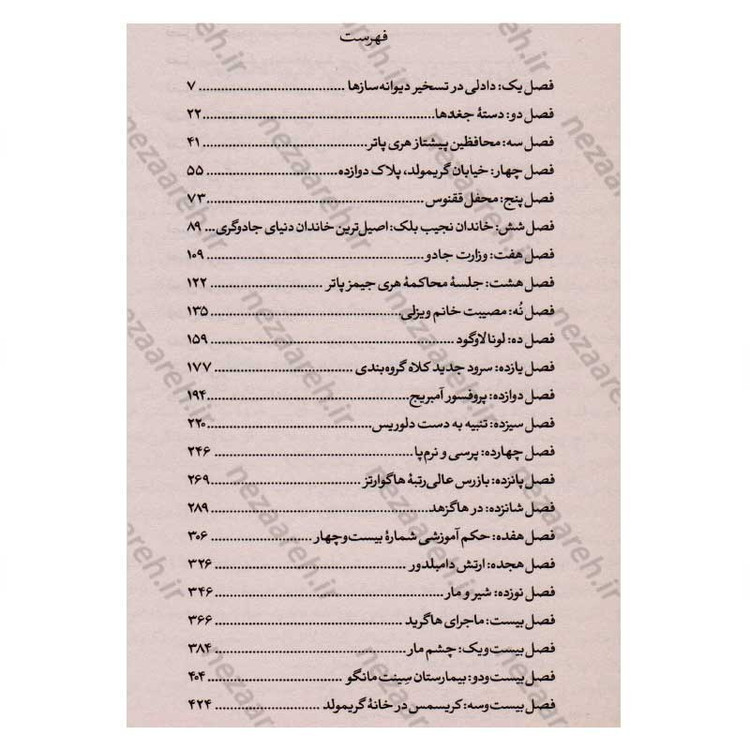 فهرست
فصل یک: دادلی در تسخیر دیوانه‌سازها ........................................ ۷
فصل دو: دستهٔ جغدها ........................................ ۲۲
فصل سه: محافظین پیشتاز هری پاتر ........................................ ۴۱
فصل چهار: خیابان گریمولد، پلاک دوازده ........................................ ۵۵
فصل پنج: محفل ققنوس ........................................ ۷۳
فصل شش: خاندان نجیب بلک: اصیل‌ترین خاندان دنیای جادوگری... ۸۹
فصل هفت: وزارت جادو ........................................ ۱۰۹
فصل هشت: جلسهٔ محاکمهٔ هری جیمز پاتر ........................................ ۱۲۲
فصل نُه: مصیبت خانم ویزلی ........................................ ۱۳۵
فصل ده: لونا لاوگود ........................................ ۱۵۹
فصل یازده: سرود جدید کلاه گروه‌بندی ........................................ ۱۷۷
فصل دوازده: پروفسور آمبریج ........................................ ۱۹۴
فصل سیزده: تنبیه به دست دلوریس ........................................ ۲۲۰
فصل چهارده: پرسی و نرم‌پا ........................................ ۲۴۶
فصل پانزده: بازرس عالی‌رتبهٔ هاگوارتز ........................................ ۲۶۹
فصل شانزده: در هاگزهد ........................................ ۲۸۹
فصل هفده: حکم آموزشی شمارهٔ بیست‌وچهار ........................................ ۳۰۶
فصل هجده: ارتش دامبلدور ........................................ ۳۲۶
فصل نوزده: شیر و مار ........................................ ۳۴۶
فصل بیست: ماجرای هاگرید ........................................ ۳۶۶
فصل بیست‌ویک: چشم مار ........................................ ۳۸۴
فصل بیست‌ودو: بیمارستان سِینت مانگو ........................................ ۴۰۴
فصل بیست‌وسه: کریسمس در خانهٔ گریمولد ........................................ ۴۲۴
nezaareh.ir